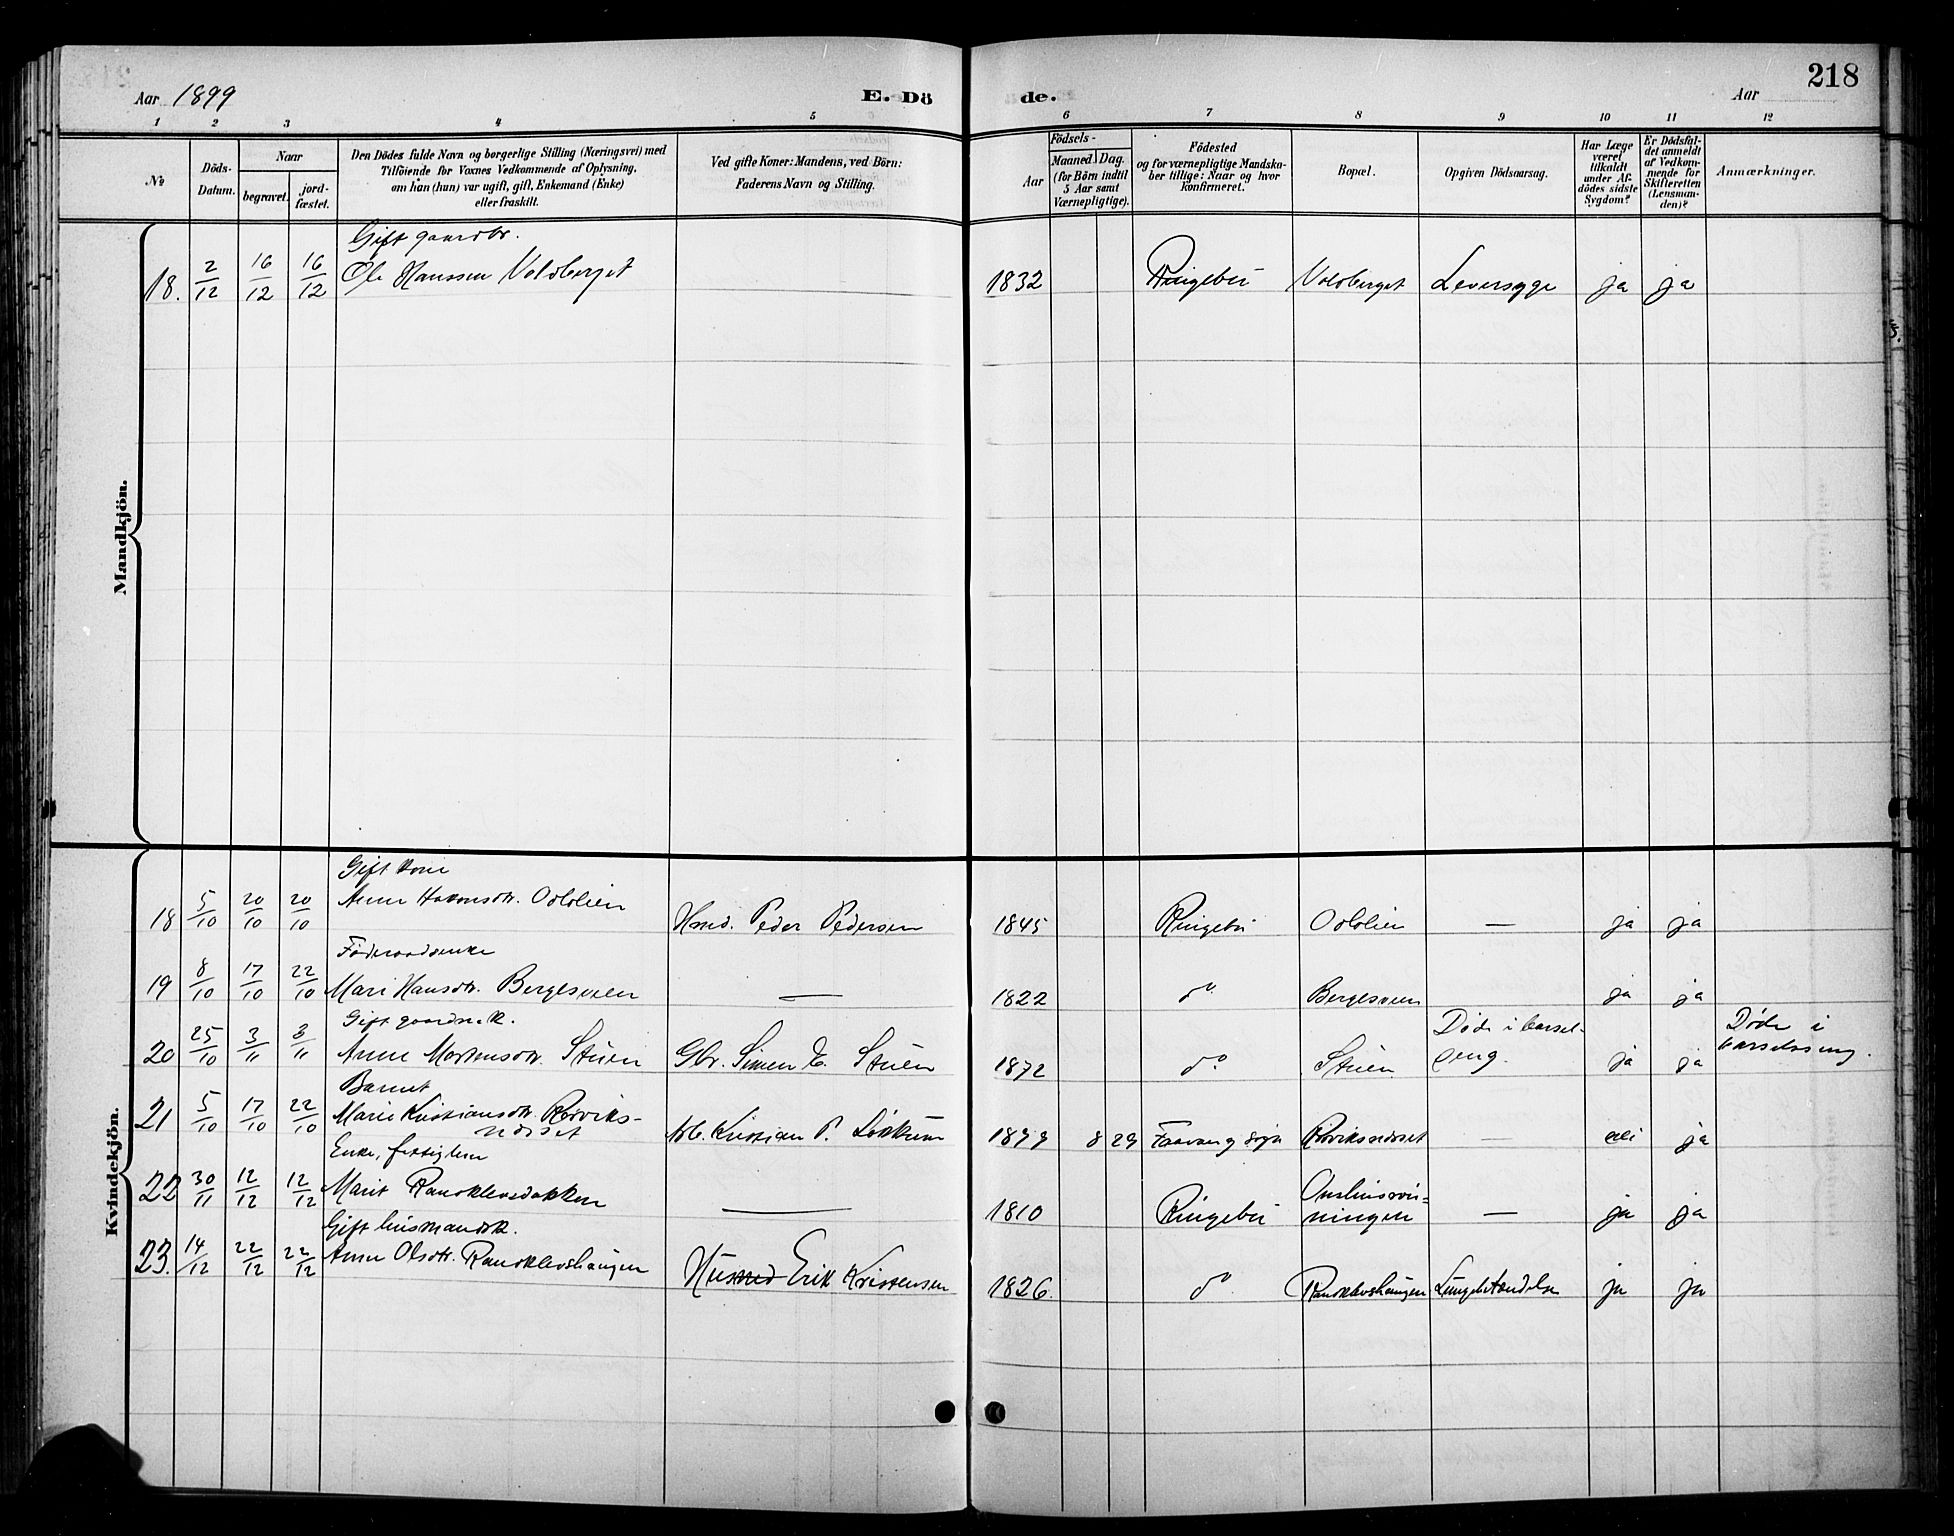 Aar 1899
E. Dö
de.
Aar
218
1 2 3 4 5 6 7 8 9 10 11 12
№
Döds-
Datum.
Naar
begravet.
jord-
fæstet.
Den Dödes fulde Navn og borgerlige Stilling (Næringsvei) med
Tilföiende for Voxnes Vedkommende af Oplysning.
om han (hun) var ugift, gift, Enkemand (Enke)
eller fraskilt.
Ved gifte Koner: Mandens, ved Börn:
Faderens Navn og Stilling.
Aar
Födsels-
Maaned. Dag.
(for Börn indtil
5 Aar samt
Værnepligtige).
Födested
og for værnepligtige Mandska-
ber tillige: Naar og hvor
konfirmeret.
Bopæl.
Opgiven Dödsaarsag.
Har Læge
været
tilkaldt
under Af-
dödes sidste
Sygdom?
Er Dödsfal-
det anmeldt
af Vedkom-
mende for
Skifteretten
(Lensman-
den)?
Anmærkninger.
Mandkjön.
Gift gaardbr.
18. 2/12 16/12 16/12 Ole Hanssen Voldberget 1832 Ringebu Voldberget Leversyge ja ja
Kvindekjön.
Gift Kone
18 5/10 20/10 20/10 Anne Hakonsdtr. Odolien Hsmd. Peder Pedersen 1845 Ringebu Odolien — ja ja
Föderaadsenke
19 8/10 17/10 22/10 Mari Hansdtr. Bergesveen — 1822 do Bergesveen ja ja
Gift gaardm.k.
20 25/10 3/11 3/11 Anne Mortensdtr. Stuen Gbr. Simen E. Stuen 1872 do. Stuen Døde i barsel-
seng. ja ja Døde i
barselseng.
Barnet
21 5/10 17/10 22/10 Marie Kristiansdtr. Roviks-
nordset Arb. Kristian P. 1899 8 29 Faavang sogn — nei ja
Enke, fattiglem
22 30/11 12/12 12/12 Marit Randklevsdokken — 1810 Ringebu — ja ja
Gift husmandsk.
23. 14/12 22/12 22/12 Anne Olsdtr. Randklevshaugen Husmd Erik Kristensen 1826. do. Randklevshaugen Lungebetændelse ja ja